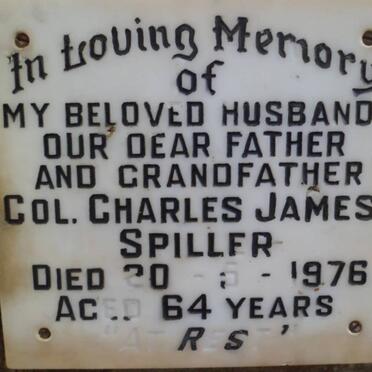 In Loving Memory
of
MY BELOVED HUSBAND
OUR DEAR FATHER
AND GRANDFATHER
COL. CHARLES JAMES
SPILLER
DIED 20 - 5 - 1976
AGED 64 YEARS
"AT REST"